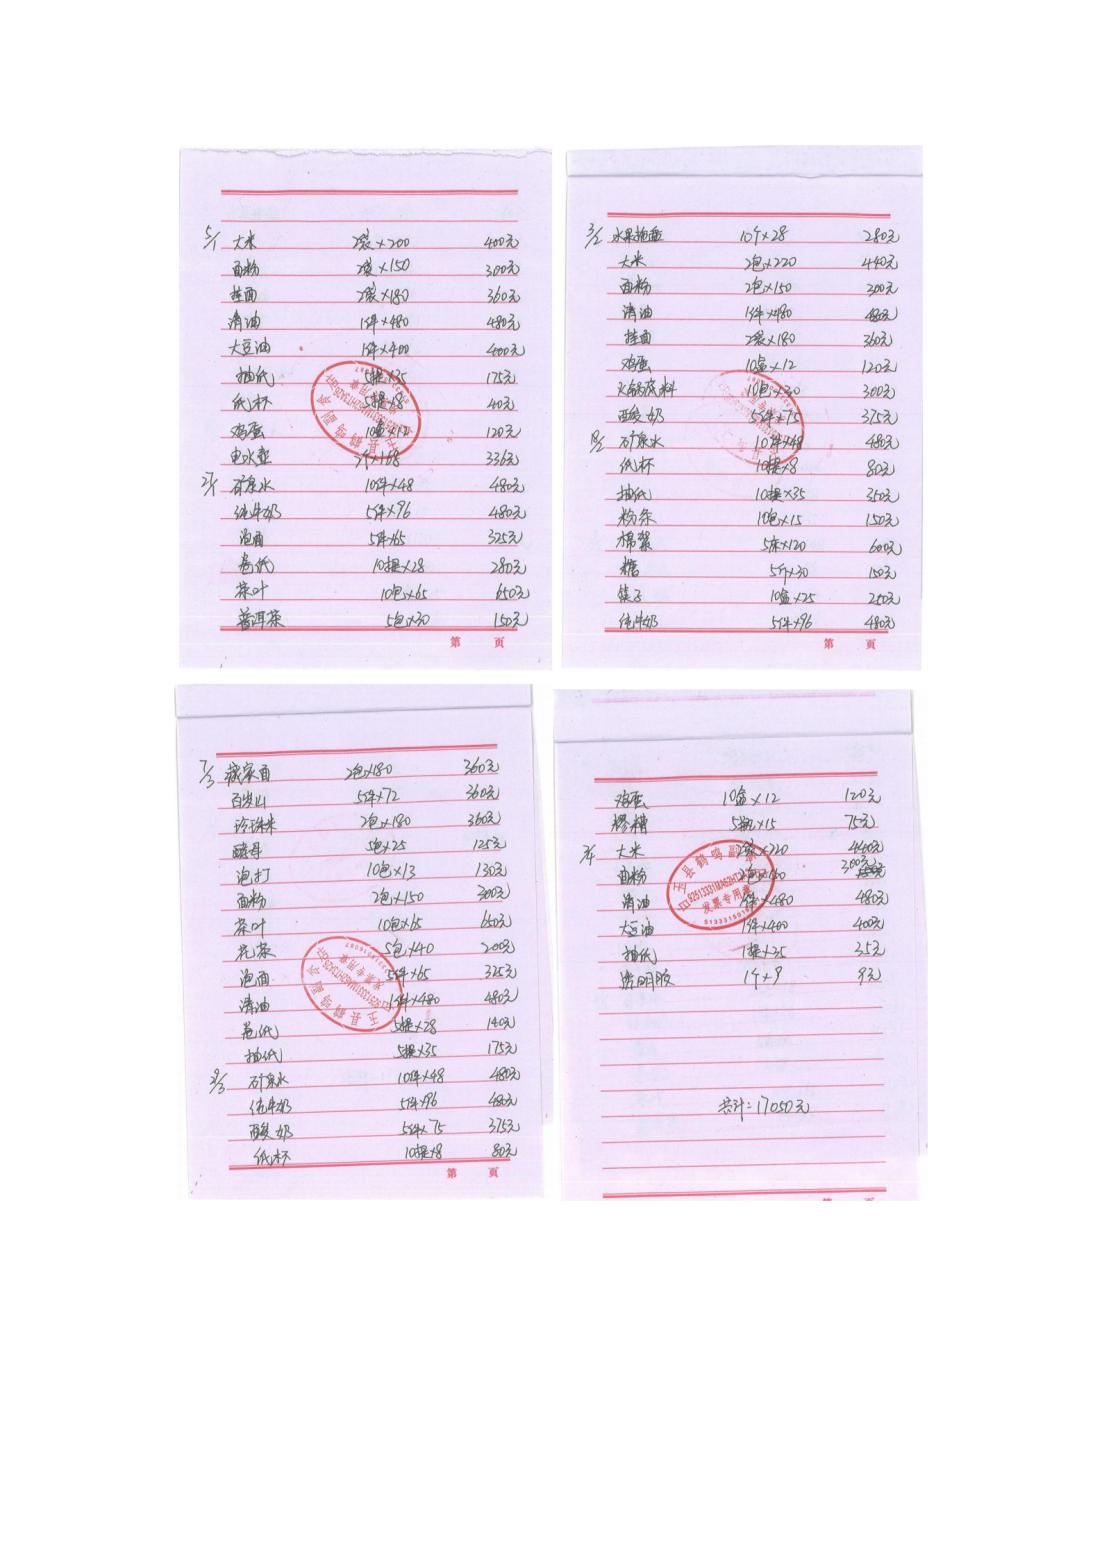 5/1 大米 2袋×200 400元
面粉 2袋×150 300元
挂面 2袋×180 360元
清油 1件×480 480元
大豆油 1件×400 400元
抽纸 5提×35 175元
纸杯 5提×8 40元
鸡蛋 10盒×12 120元
电水壶 2个×168 336元
矿泉水 10件×48 480元
纯牛奶 5件×96 480元
泡面 5件×65 325元
卷纸 10提×28 280元
茶叶 10包×65 650元
普洱茶 5包×30 150元
第 页
3/2 水果拖盘 10个×28 280元
大米 2包×220 440元
面粉 2包×150 300元
清油 1件×480 480元
挂面 2袋×180 360元
鸡蛋 10盒×12 120元
火锅底料 10包×30 300元
酸奶 5件×75 375元
矿泉水 10件×48 480元
纸杯 10提×8 80元
抽纸 10提×35 350元
粉条 10包×15 150元
棉絮 5床×120 600元
糖 5斤×30 150元
筷子 10盒×25 250元
纯牛奶 5件×96 480元
第 页
7/3 藏家面 2包×180 360元
百岁山 5件×72 360元
珍珠米 2包×180 360元
酵母 5包×25 125元
泡打 10包×13 130元
面粉 2包×150 300元
茶叶 10包×65 650元
花茶 5包×40 200元
泡面 5件×65 325元
清油 1件×480 480元
卷纸 5提×28 140元
抽纸 5提×35 175元
矿泉水 10件×48 480元
纯牛奶 5件×96 480元
酸奶 5件×75 375元
纸杯 10提×8 80元
第 页
鸡蛋 10盒×12 120元
醪糟 5瓶×15 75元
大米 2袋×220 440元
面粉 2包×150 300元
清油 1件×480 480元
大豆油 1件×400 400元
抽纸 1提×35 35元
透明胶 1个×9 9元
共计:17050元
发票专用章